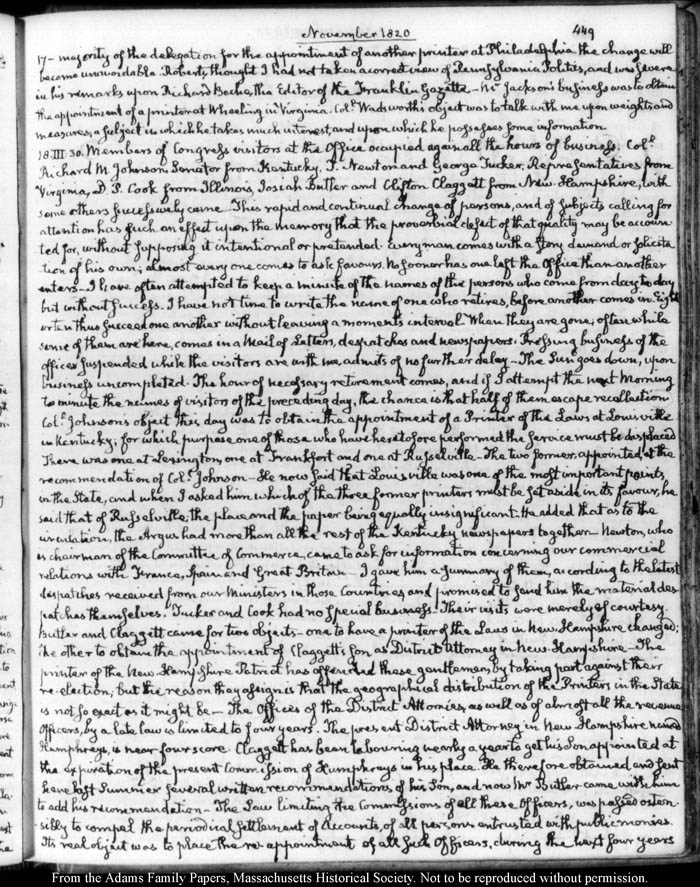 November 1820
449
17- majority of the delegation for the appointment of another printer at Philadelphia the change will
become unavoidable. Roberts thought I had not taken a correct view of Pennsylvania Politics, and was severe
in his remarks upon Richard Bache, the Editor of the Franklin Gazette.- Mr Jackson's business was to obtain
the appointment of a printer at Wheeling in Virginia. Coll. Wadsworth's object was to talk with me upon weights and
measures; a subject in which he takes much interest, and upon which he possesses some information.
18. III:30. Members of Congress visitors at the Office occupied again all the hours of business. Coll.
Richard M. Johnson, Senator from Kentucky, T. Newton and George Tucker, Representatives from
Virginia, D. P. Cook from Illinois, Josiah Butler and Clifton Claggett from New-Hampshire, with
some others successively came. This rapid and continual change of persons, and of subjects calling for
attention has such an effect upon the memory that the proverbial defect of that quality may be accoun-
ted for, without supposing it intentional or pretended. Every man comes with a story demand or solicita-
tion of his own; almost every one comes to ask favours. No sooner has one left the Office than another
enters.- I have often attempted to keep a minute of the names of the persons who come from day to day
but without success. I have not time to write the name of one who retires, before another comes in. Eight
or ten thus succeed one another without leaving a moment's interval. When they are gone, often while
some of them are here, comes in a Mail of Letters, despatches and newspapers. Pressing business of the
offices suspended while the visitors are with me, admits of no further delay - The Sun goes down, upon
business uncompleted. The hour of necessary retirement comes, and if I attempt the next Morning
to minute the names of visitors of the preceding day, the chance is that half of them escape recollection
Coll. Johnson's object this day was to obtain the appointment of a Printer of the Laws at Louisville
in Kentucky; for which purpose one of those who have heretofore performed the service must be displaced
There was one at Lexington, one at Frankfort and one at Russelville- The two former, appointed, at the
recommendation of Coll. Johnson- He now said that Louisville was one of the most important points,
in the State, and when I asked him which of the three former printers must be set aside in its favour, he
said that of Russelville, the place and the paper being equally insignificant. He added that as to the
circulation, the Argus had more than all the rest of the Kentucky newspapers together- Newton, who
is chairman of the Committee of Commerce, came to ask for information concerning our commercial
relations with France, Spain and Great Britain- I gave him a summary of them, according to the latest
despatches received from our Ministers in those Countries and promised to send him the material des-
patches themselves. Tucker and Cook had no special business. Their visits were merely of courtesy.
Butler and Claggett came for two objects- one to have a printer of the Laws in New-Hampshire changed;
the other to obtain the appointment of Claggett's son as District Attorney in New-Hampshire- The
printer of the New Hampshire Patriot has offended these gentlemen, by taking part against their
re-election, but the reason they assign is that the geographical distribution of the Printers in the State
is not so exact as it might be- The Offices of the District Attornies, as well as of almost all the revenue
Officers, by a late law is limited to four years. The present District Attorney in New Hampshire named
Humphreys, is near fourscore. Claggett has been labouring nearly a year to get his Son appointed at
the expiration of the present Commission of Humphreys in his place. He therefore obtained and sent
here last Summer several written recommendations of his Son, and now Mr Butler came with him
to add his recommendation- The Law limiting the Commissions of all these Officers, was passed osten-
sibly to compel the periodical settlement of Accounts, of all persons entrusted with public monies.
Its real object was to place the re-appointment of all such Officers, during the next four years
From the Adams Family Papers, Massachusetts Historical Society. Not to be reproduced without permission.